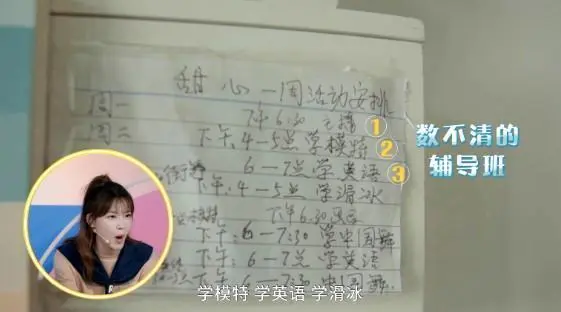 甜心一周活动安排
周一 下午6:30 主持
周二 下午:4-5点学模特 ①
6-7点学英语 ②
下午:4-5点 学滑冰 ③
下午6:30
下午:6-7:30 学中国舞
下午:6-7点 学英语
下午:6-7:30 中国舞.
数不清的
辅导班
学模特 学英语 学滑冰